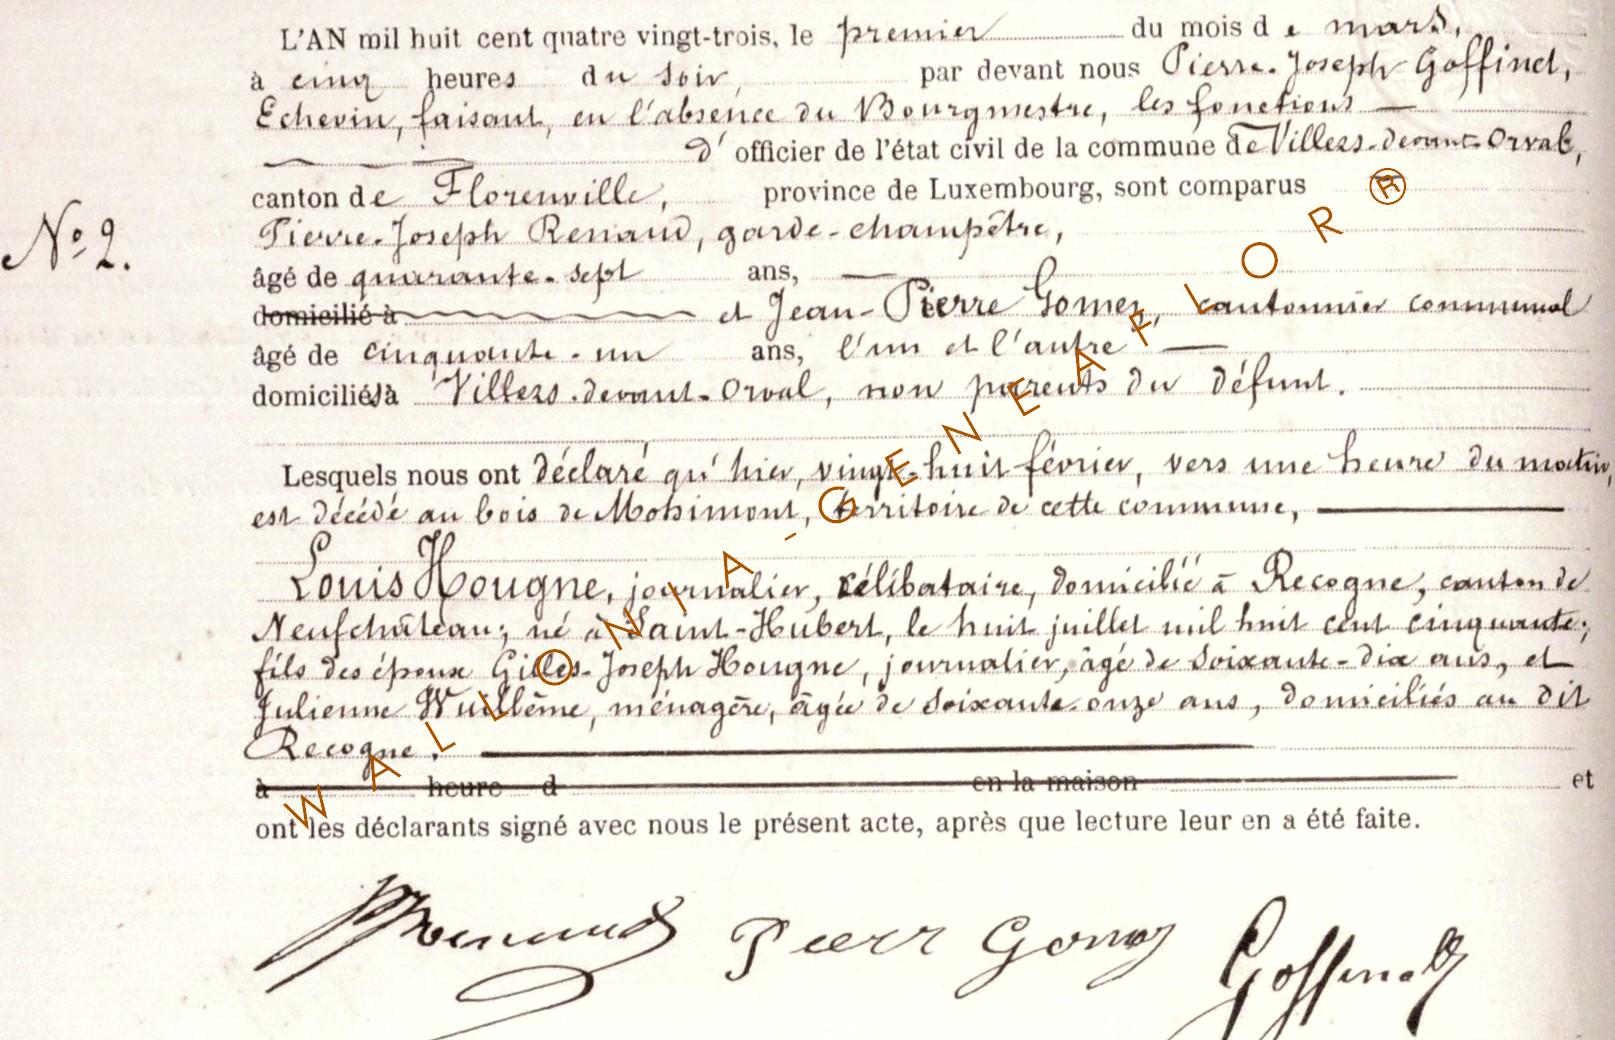 L'AN mil huit cent quatre vingt-trois, le premier du mois de mars,
à cinq heures du soir, par devant nous Pierre-Joseph Goffinet,
Echevin, faisant, en l'absence du Bourgmestre, les fonctions
d'officier de l'état civil de la commune de Villers-devant-Orval,
canton de Florenville, province de Luxembourg, sont comparus
Pierre-Joseph Renaud, garde-champêtre,
N° 2.
âgé de quarante-sept ans,
domicilié à et Jean-Pierre Gomez, cantonnier communal
âgé de cinquante-un ans, l'un et l'autre
domiciliés à Villers-devant-Orval, non parents du défunt.
Lesquels nous ont déclaré qu'hier, vingt-huit février, vers une heure du matin,
est décédé au bois de Mohimont, territoire de cette commune,
Louis Hougne, journalier, célibataire, domicilié à Recogne, canton de
Neufchâteau; né à Saint-Hubert, le huit juillet mil huit cent cinquante;
fils des époux Gilles-Joseph Hougne, journalier, âgé de soixante-dix ans, et
Julienne Wuillême, ménagère, âgée de soixante-onze ans, domiciliés au dit
Recogne.
à heure d en la maison et
ont les déclarants signé avec nous le présent acte, après que lecture leur en a été faite.
Renaud Pierr Gomez Goffinet
WALLONIA-GENEAFLOR®